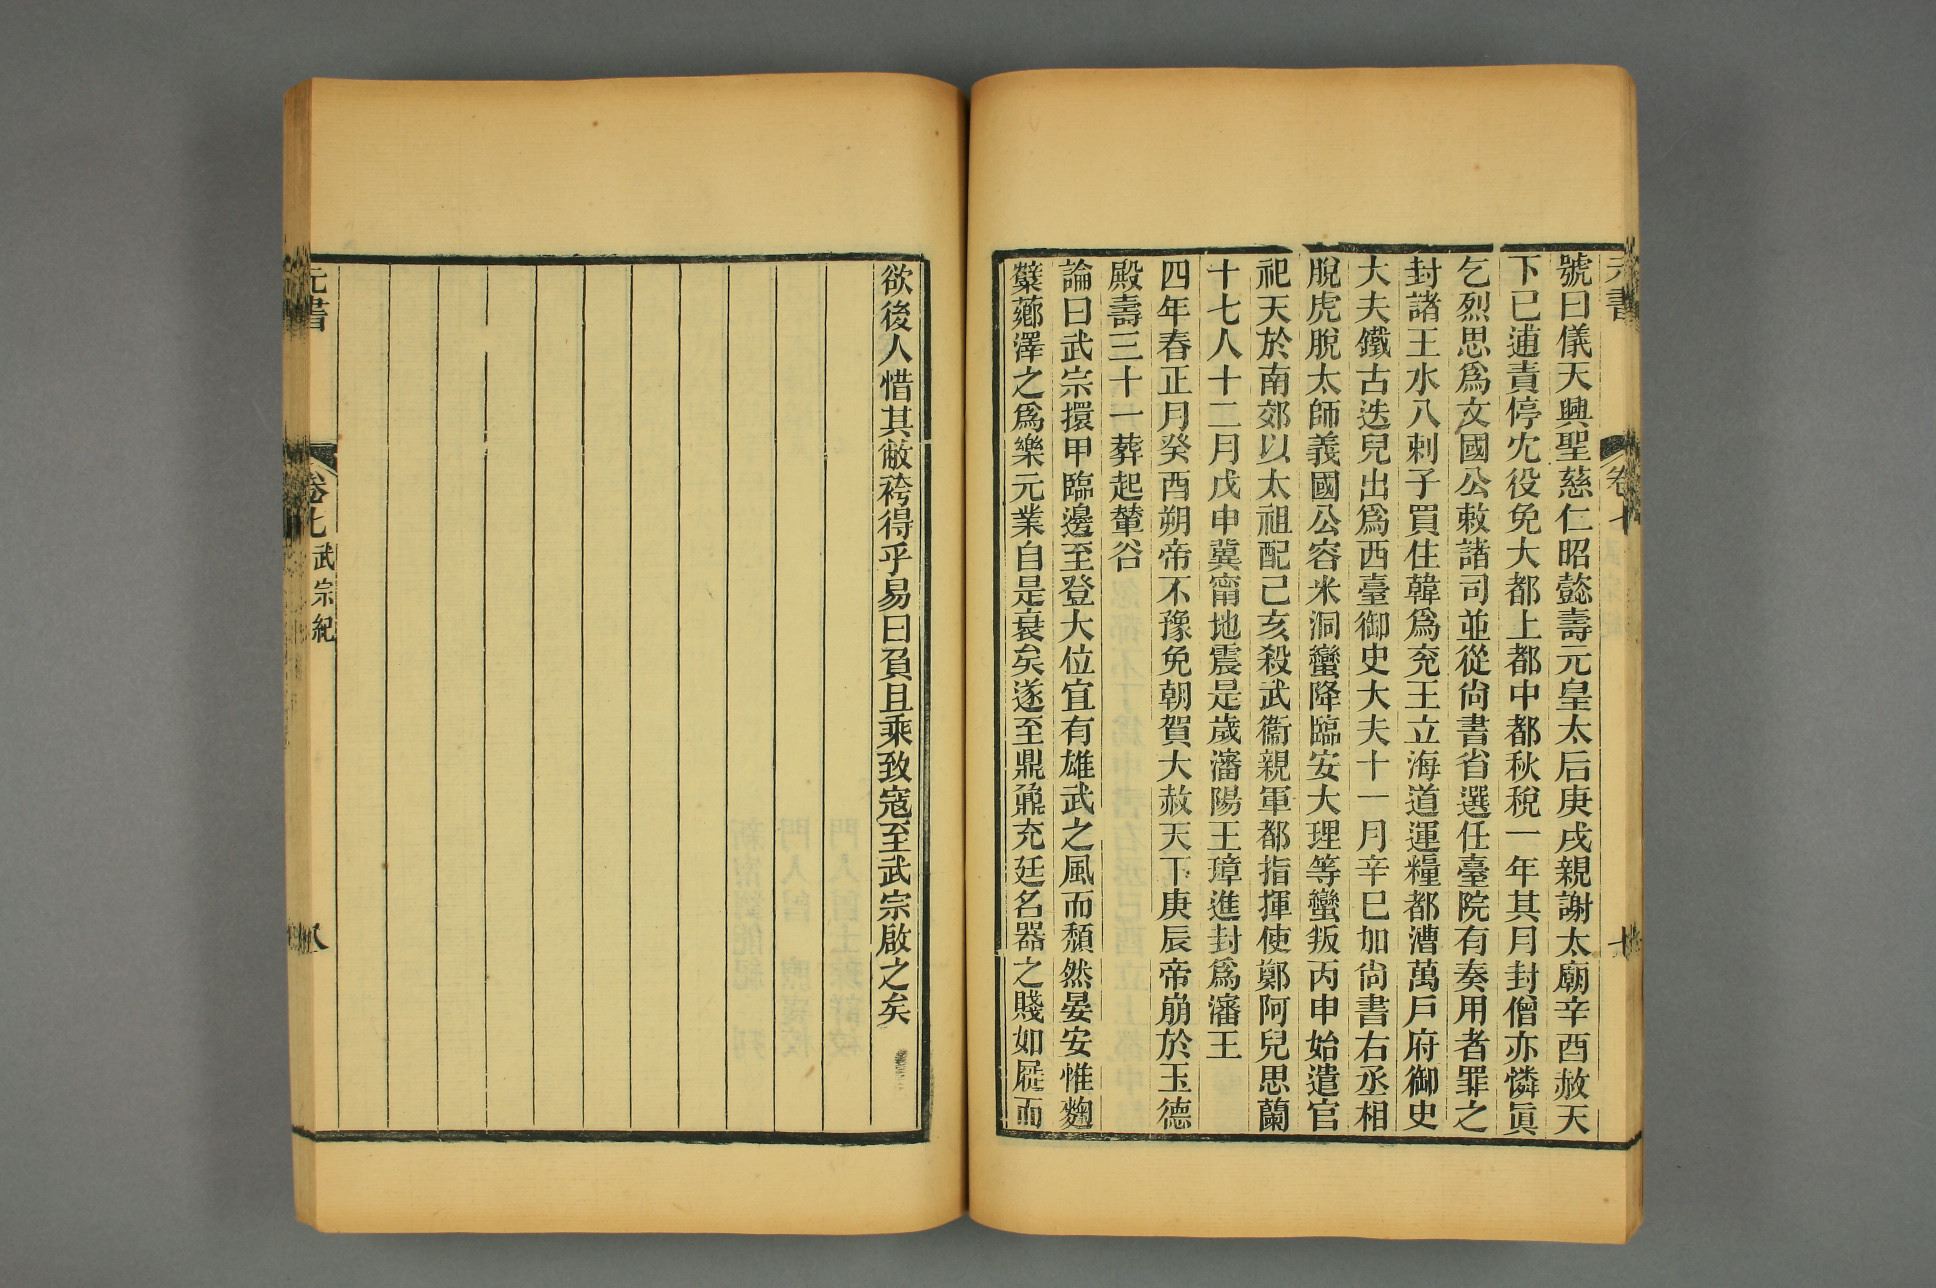 號曰儀天興聖慈仁昭懿壽元皇太后庚戌親謝太廟辛酉赦天
下已逋責停宂役免大都上都中都秋稅一年其月封僧亦憐眞
乞烈思爲文國公敕諸司並從尙書省選任臺院有奏用者罪之
封諸王水八剌子買住韓爲兖王立海道運糧都漕萬戶府御史
大夫鐵古迭兒出爲西臺御史大夫十一月辛巳加尙書右丞相
脫虎脫太師義國公容米洞蠻降臨安大理等蠻叛丙申始遣官
祀天於南郊以太祖配己亥殺武衞親軍都指揮使鄭阿兒思蘭
十七人十二月戊申冀甯地震是歲瀋陽王璋進封爲瀋王
四年春正月癸酉朔帝不豫免朝賀大赦天下庚辰帝崩於玉德
殿壽三十一葬起輦谷
論曰武宗擐甲臨邊至登大位宜有雄武之風而頹然晏安惟麴
糱薌澤之爲樂元業自是衰矣遂至鼎鼐充廷名器之賤如屣而
元書
卷七
七
欲後人惜其敝袴得乎易曰負且乘致寇至武宗啟之矣
元書
卷七 武宗紀
八